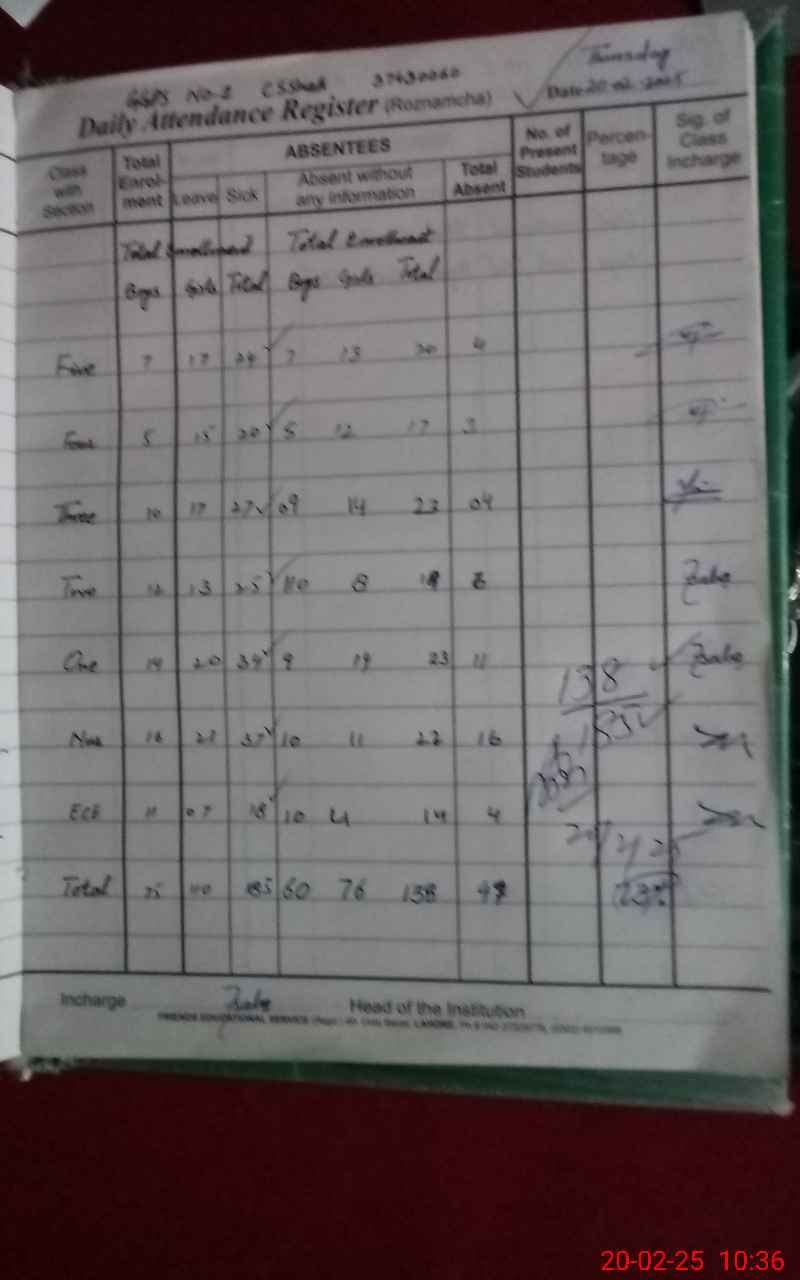 GGPS No-2 CSShah 37430060
Thursday
Daily Attendance Register (Roznamcha)
Date 20-02-2025
Class with Section
Total Enrol-ment
ABSENTEES
Leave Sick Absent without any information Total Absent
No. of Present Students
Percen-tage
Sig. of Class Incharge
Total Enrollment Total Enrollment
Boys Girls Total Boys Girls Total
Five 7 17 24 7 13 20 4
Four 5 15 20 5 12 17 3
Three 10 17 27 09 14 23 04
Two 12 13 25 110 8
One 14 20 34 9 19 23 11
138
Nur 37 10 11 22 16
ECE 11 07 18 10 4 14 4
Total 75 110 185 60 76 138
Incharge Head of the Institution
FRIENDS EDUCATIONAL SERVICE LAHORE
20-02-25 10:36